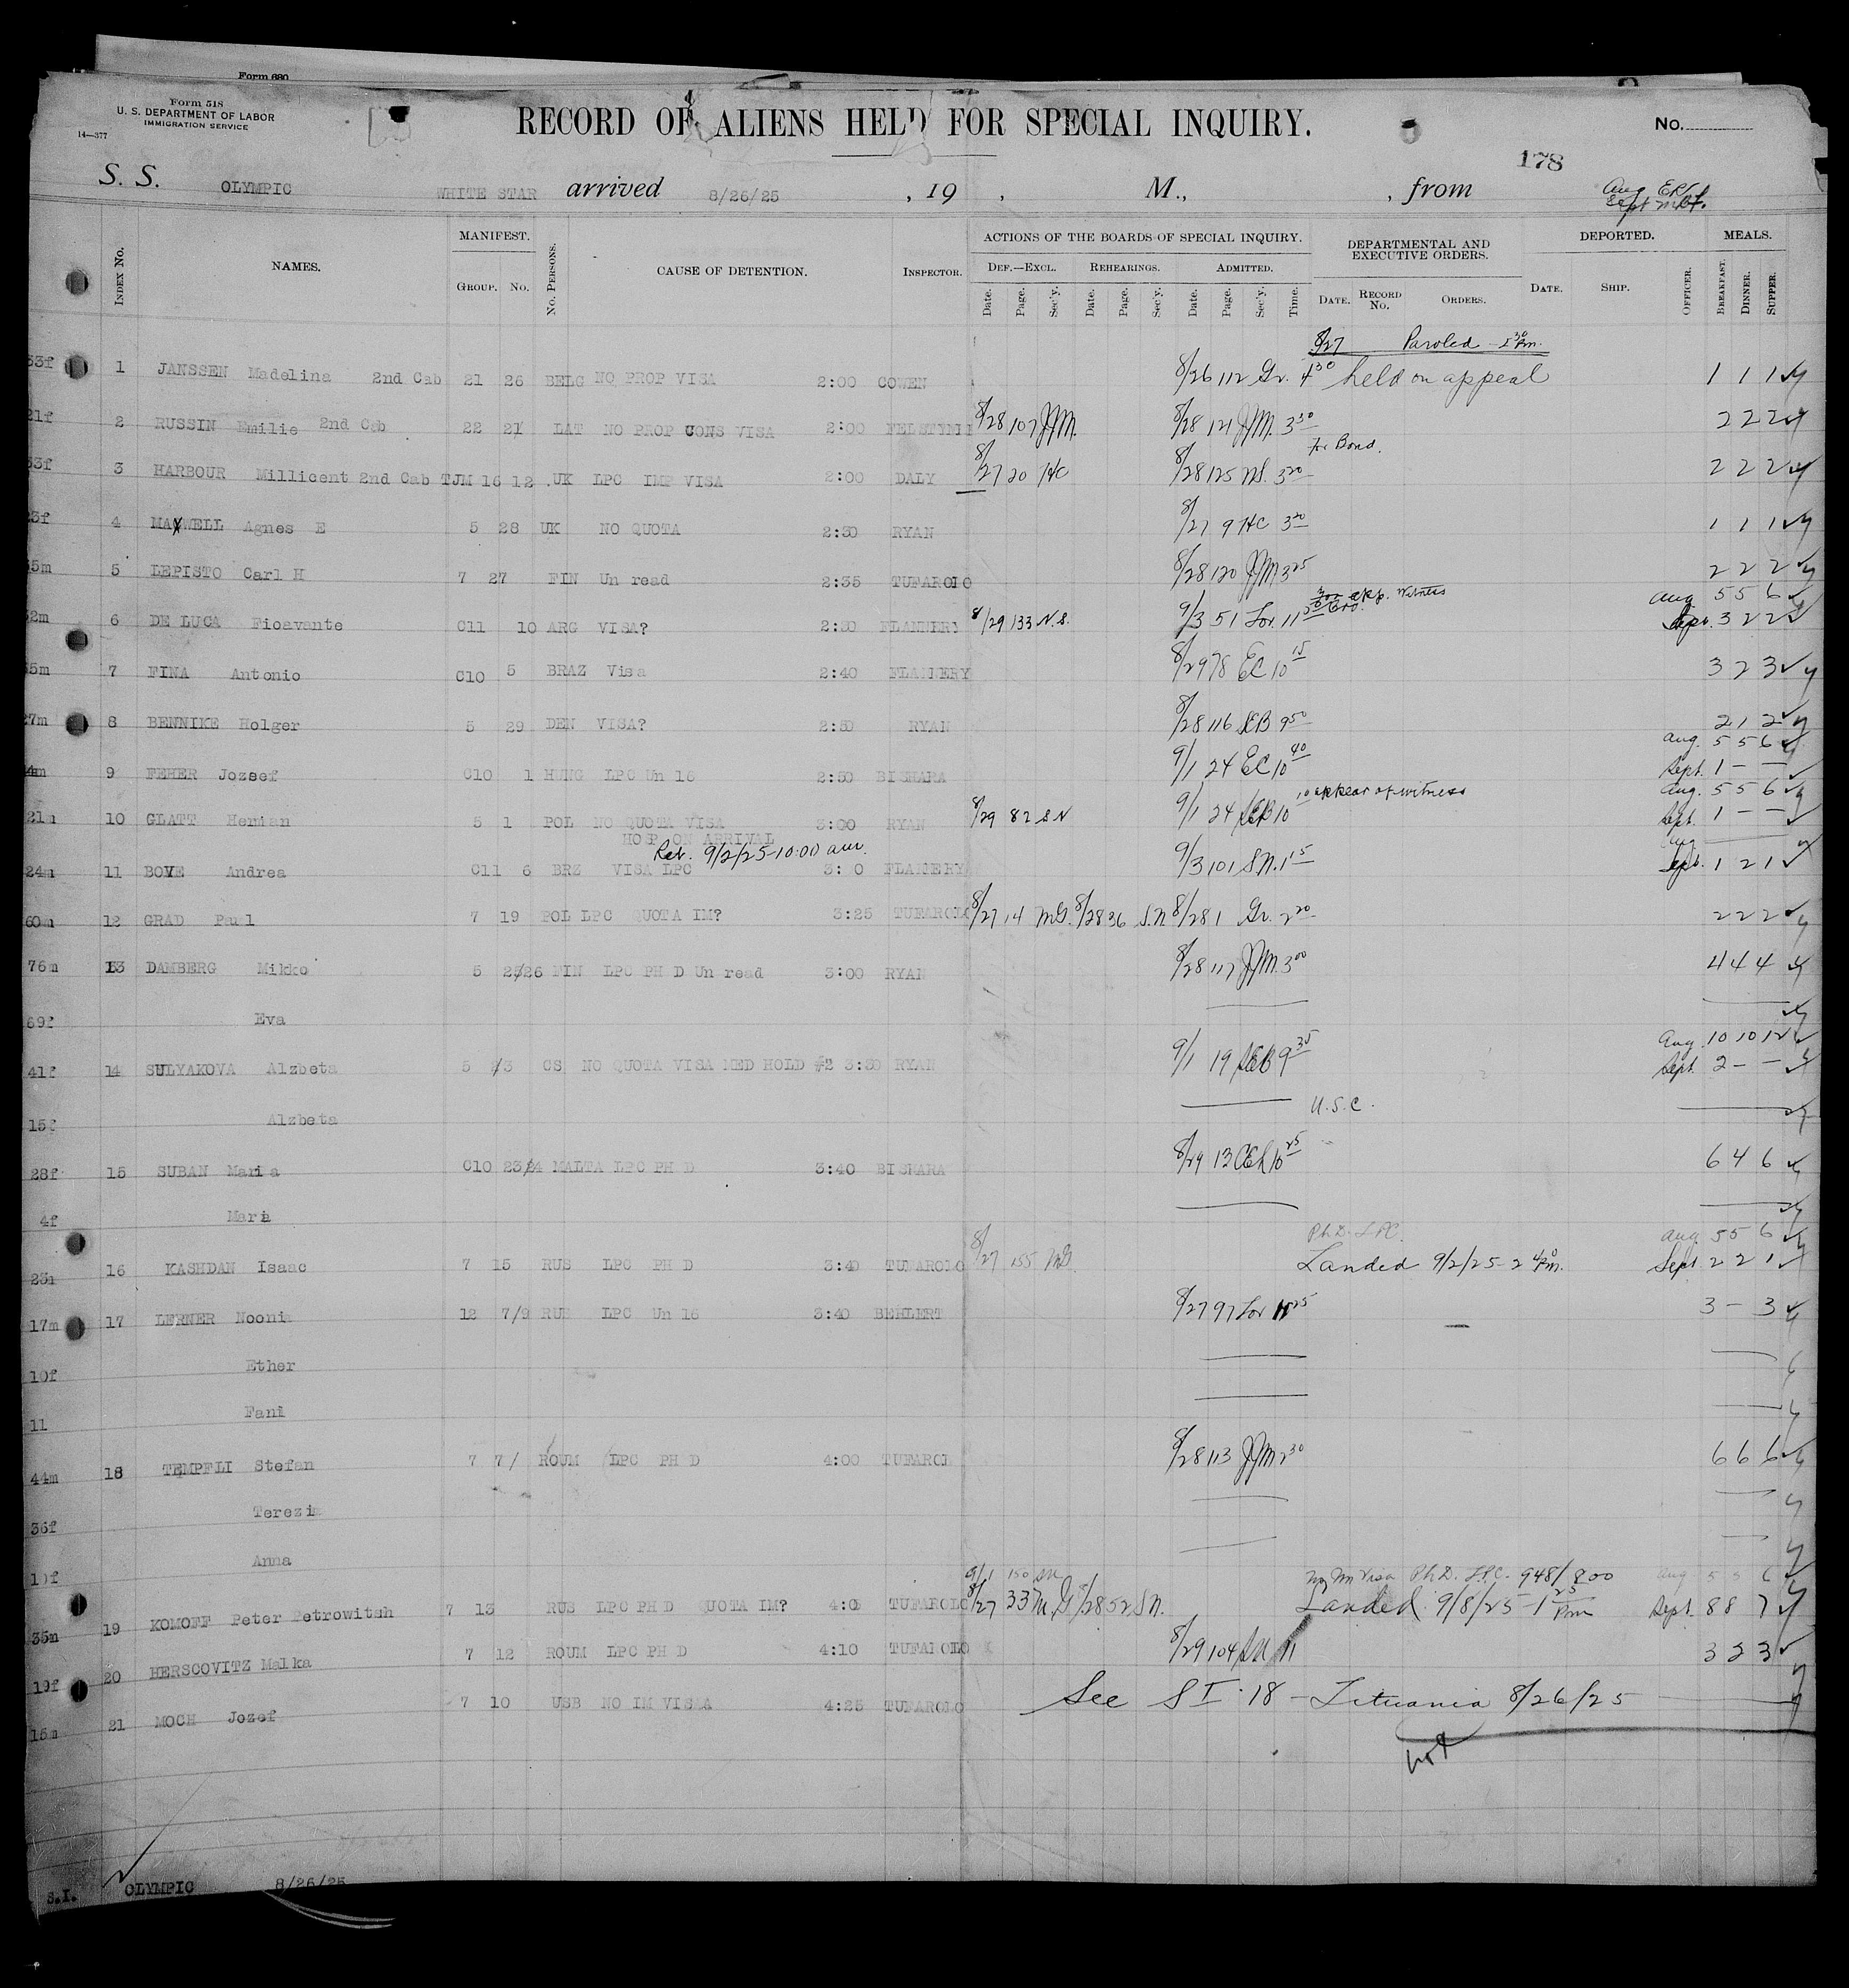 Form 680
Form 518
U. S. DEPARTMENT OF LABOR
IMMIGRATION SERVICE
14—377
RECORD OF ALIENS HELD FOR SPECIAL INQUIRY.
No.
178
S. S. OLYMPIC WHITE STAR arrived 8/26/25 , 19 , M., , from
Aug
Sept
INDEX No. NAMES. MANIFEST. GROUP. No. No. PERSONS. CAUSE OF DETENTION. INSPECTOR. ACTIONS OF THE BOARDS OF SPECIAL INQUIRY. DEF.—EXCL. Date. Page. Sec'y. REHEARINGS. Date. Page. Sec'y. ADMITTED. Date. Page. Sec'y. Time. DEPARTMENTAL AND EXECUTIVE ORDERS. DATE. RECORD No. ORDERS. DEPORTED. DATE. SHIP. OFFICER. MEALS. BREAKFAST. DINNER. SUPPER.
8/27 Paroled
33f 1 JANSSEN Madelina 2nd Cab 21 26 BELG NO PROP VISA 2:00 COWEN 8/26 112 Gr. 4 30 held on appeal 1 1 1
21f 2 RUSSIN Emilie 2nd Cab 22 21 LAT NO PROP CONS VISA 2:00 8/28 107 JJM. 8/28 121 JJM. 3 30 2 2 2
For Bond.
53f 3 HARBOUR Millicent 2nd Cab TJM 16 12 UK LPC IMP VISA 2:00 DALY 8/27 20 HC 8/28 125 NS. 3 20 2 2 2
23f 4 MAXWELL Agnes E 5 28 UK NO QUOTA 2:30 RYAN 8/27 9 HC 3 20 1 1 1
35m 5 LEPISTO Carl H 7 27 FIN Un read 2:35 TUFAROLO 8/28 120 JJM 3 25 2 2 2
app. Witness Aug 5 5 6
32m 6 DE LUCA Fioavante C11 10 ARG VISA? 2:30 FLANNERY 8/29 133 N.S. 9/3 51 Lor. 11 Sept. 3 2 2
35m 7 FINA Antonio C10 5 BRAZ Visa 2:40 FLANNERY 8/29 78 EC 10 15 3 2 3
27m 8 BENNIKE Holger 5 29 DEN VISA? 2:50 RYAN 8/28 116 9 50 2 1 2
Aug. 5 5 6
9 FEHER Jozsef C10 1 HUNG LPC Un 16 2:50 BISHARA 9/1 24 EC 10 40 Sept. 1 - -
appear of witness Aug. 5 5 6
21m 10 GLATT Herman 5 1 POL NO QUOTA VISA 3:00 RYAN 8/29 82 SN 9/1 24 10 10 Sept. 1 - -
HOSP ON ARRIVAL
Ret. 9/2/25 10:00 am.
24m 11 BOVE Andrea C11 6 BRZ VISA LPC FLANNERY 9/3 101 SN. 1 15 Sept. 1 2 1
60m 12 GRAD Paul 7 19 POL LPC QUOTA IM? 3:25 TUFAROLO 8/27 14 MG. 8/28 36 S.N 8/28 1 Gr. 2 20 2 2 2
76m 13 DAMBERG Mikko 5 25/26 FIN LPC PH D Un read 3:00 RYAN 8/28 117 JJM. 3 00 4 4 4
69f Eva
Aug 10 10 12
41f 14 SULYAKOVA Alzbeta 5 2/3 CS NO QUOTA VISA MED HOLD #2 3:30 RYAN 9/1 19 9 35 Sept. 2 - -
15f Alzbeta U.S.C.
28f 15 SUBAN Maria C10 23/24 MALTA LPC PH D 3:40 BISHARA 8/29 10 25 6 4 6
4f Maria
Ph.D. LPC. Aug 5 5 6
23m 16 KASHDAN Isaac 7 15 RUS LPC PH D 3:40 TUFAROLO 8/27 155 MG. Landed 9/2/25 2 40 Pm. Sept 2 2 1
17m 17 LERNER Noonia 12 7/9 RUS LPC Un 16 3:40 BEHLERT 8/27 97 Lor 11 25 3 - 3
10f Ether
11 Fani
44m 18 TEMPFLI Stefan 7 7/ ROUM LPC PH D 4:00 TUFAROL 8/28 113 JJM 2 30 6 6 6
36f Terezia
Anna
9/1 150 SN Visa Ph.D. LPC. 948/800 Aug 5 5 6
35m 19 KOMOFF Peter Petrowitsh 7 13 RUS LPC PH D QUOTA IM? TUFAROLO 8/27 33 M.G 8/28 52 S.N. Landed 9/8/25 1 25 Pm Sept. 8 8 7
19f 20 HERSCOVITZ Malka 7 12 ROUM LPC PH D 4:10 TUFAROLO 8/29 104 SN 11 3 2 3
15m 21 MOCH Jozef 7 10 USB NO IM VISAA 4:25 TUFAROLO See S I 18 - Lituania 8/26/25
not
S.I. OLYMPIC 8/26/25